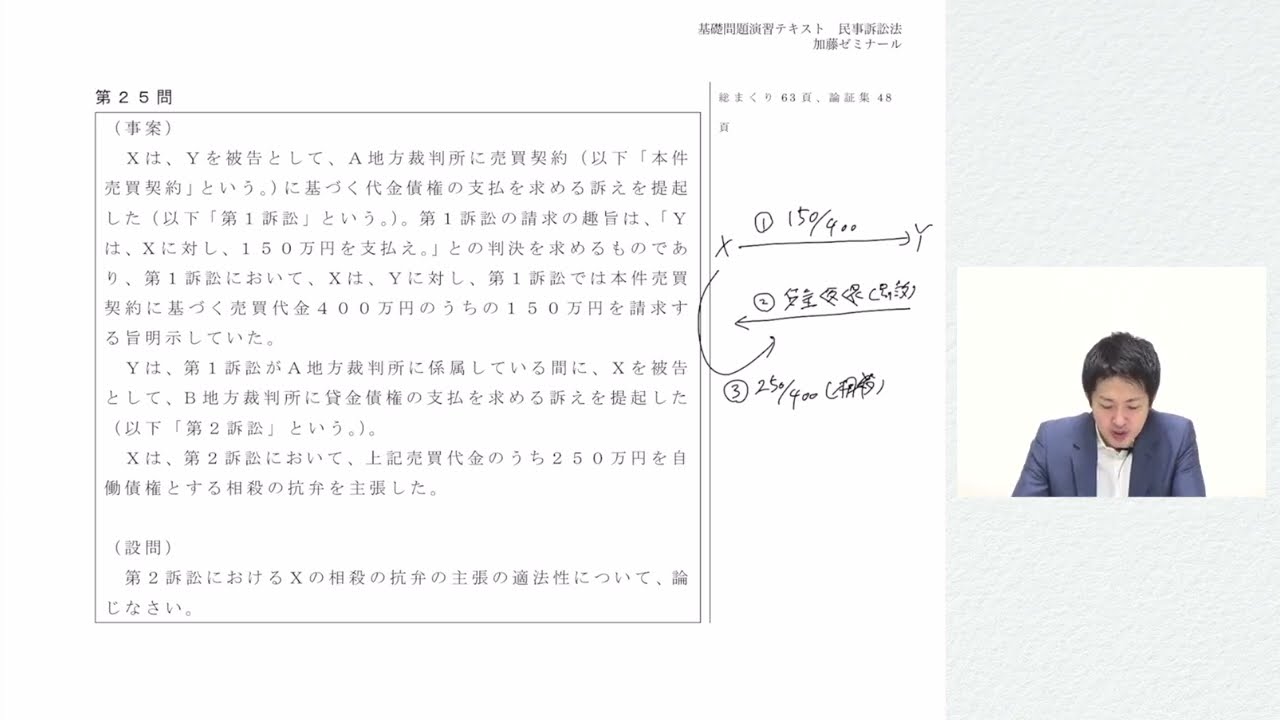 基礎問題演習テキスト　民事訴訟法
加藤ゼミナール
第２５問
総まくり 63頁、論証集 48
頁
（事案）
　Ｘは、Ｙを被告として、Ａ地方裁判所に売買契約（以下「本件
売買契約」という。）に基づく代金債権の支払を求める訴えを提起
した（以下「第１訴訟」という。）。第１訴訟の請求の趣旨は、「Ｙ
は、Ｘに対し、１５０万円を支払え。」との判決を求めるものであ
り、第１訴訟において、Ｘは、Ｙに対し、第１訴訟では本件売買
契約に基づく売買代金４００万円のうちの１５０万円を請求す
る旨明示していた。
　Ｙは、第１訴訟がＡ地方裁判所に係属している間に、Ｘを被告
として、Ｂ地方裁判所に貸金債権の支払を求める訴えを提起した
（以下「第２訴訟」という。）。
　Ｘは、第２訴訟において、上記売買代金のうち２５０万円を自
働債権とする相殺の抗弁を主張した。
（設問）
　第２訴訟におけるＸの相殺の抗弁の主張の適法性について、論
じなさい。
① 150/400
X Y
②
③ 250/400 (相殺)